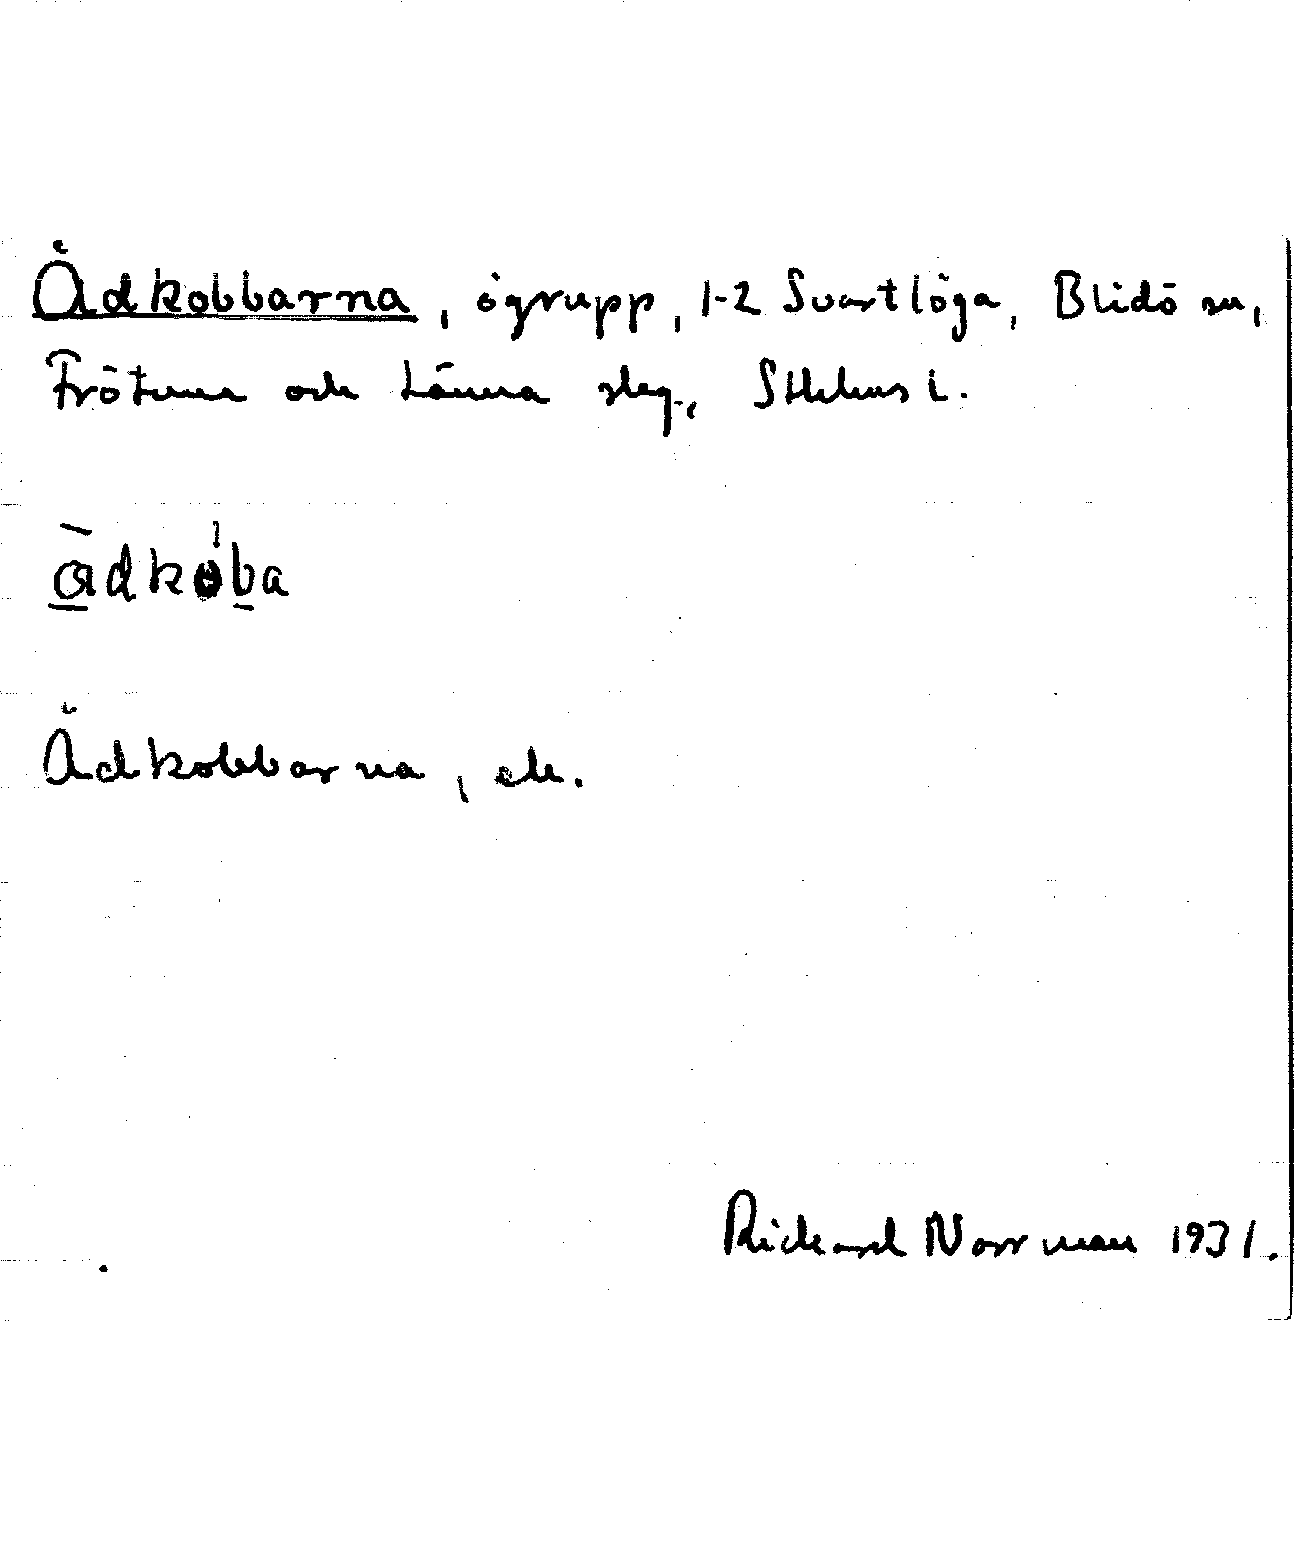 Ådkobbarna, ögrupp, 1-2 Svartlöga, Blidö sn,
Frötuna och Länna slg, Sthlms l.
ådkòba
Ådkobbarna, ek.
Rickard Norrman 1931.